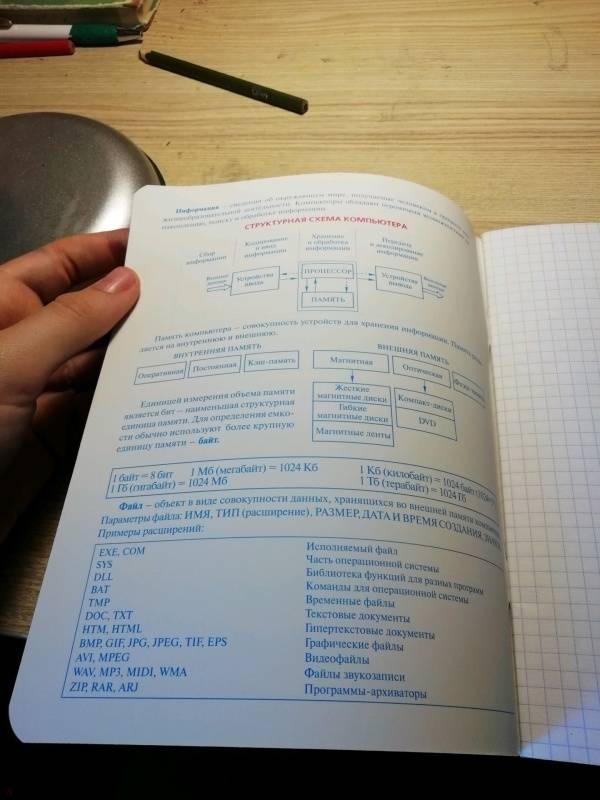 Информация – сведения об окружающем мире, получаемые человеком в процессе
жизнеобразовательной деятельности. Компьютеры обладают огромными возможностями
накоплению, поиску и обработке информации.
СТРУКТУРНАЯ СХЕМА КОМПЬЮТЕРА
Сбор информации
Кодирование и ввод информации
Хранение и обработка информации
Передача и декодирование информации
Входные данные
Устройства ввода
ПРОЦЕССОР
ПАМЯТЬ
Устройства вывода
данные
Память компьютера – совокупность устройств для хранения информации. Память
ляется на внутреннюю и внешнюю.
ВНУТРЕННЯЯ ПАМЯТЬ
Оперативная Постоянная Кэш-память
ВНЕШНЯЯ ПАМЯТЬ
Магнитная Оптическая Флэш-память
Жесткие
магнитные диски
Гибкие
магнитные диски
Магнитные ленты
Компакт-диски
DVD
Единицей измерения объема памяти
является бит – наименьшая структурная
единица памяти. Для определения емко-
сти обычно используют более крупную
единицу памяти – байт.
1 байт = 8 бит 1 Мб (мегабайт) = 1024 Кб 1 Кб (килобайт) = 1024 байт
1 Гб (гигабайт) = 1024 Мб 1 Тб (терабайт) = 1024 Гб
Файл – объект в виде совокупности данных, хранящихся во внешней памяти
Параметры файла: ИМЯ, ТИП (расширение), РАЗМЕР, ДАТА И ВРЕМЯ СОЗДАНИЯ,
Примеры расширений:
EXE, COM Исполняемый файл
SYS Часть операционной системы
DLL Библиотека функций для разных программ
BAT Команды для операционной системы
TMP Временные файлы
DOC, TXT Текстовые документы
HTM, HTML Гипертекстовые документы
BMP, GIF, JPG, JPEG, TIF, EPS Графические файлы
AVI, MPEG Видеофайлы
WAV, MP3, MIDI, WMA Файлы звукозаписи
ZIP, RAR, ARJ Программы-архиваторы